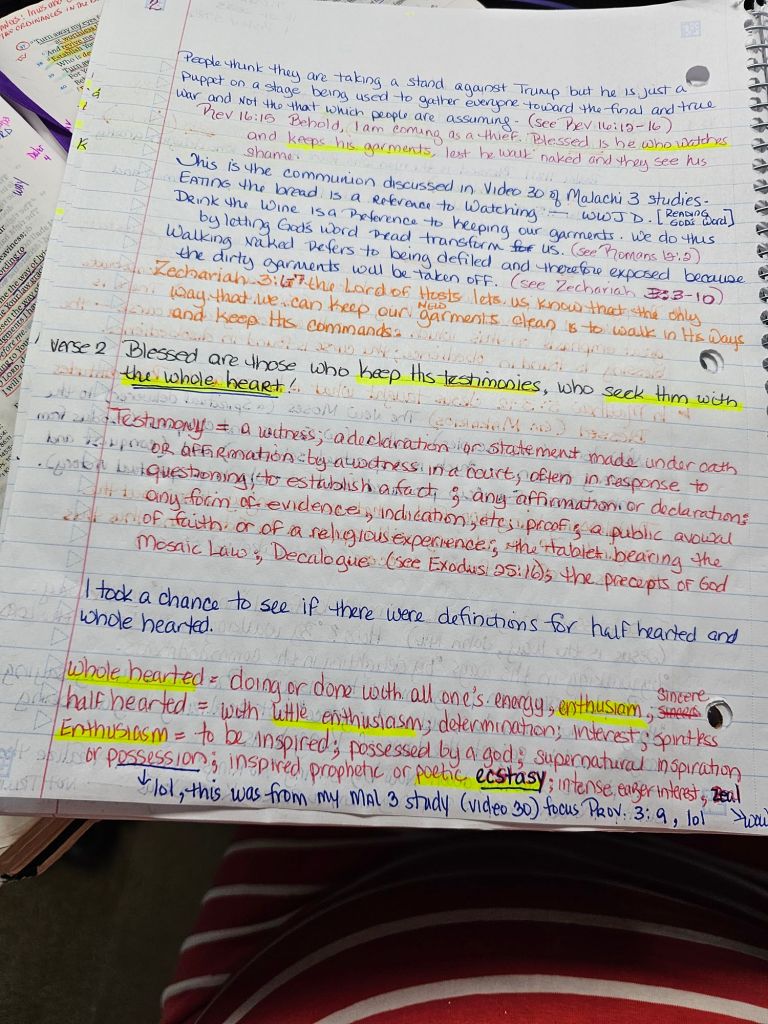 2
People think they are taking a stand against Trump but he is just a
puppet on a stage being used to gather everyone toward the final and true
war and not the that which people are assuming. (see Rev 16:12-16)
Rev 16:15 Behold, I am coming as a thief. Blessed is he who watches
and keeps his garments, lest he walk naked and they see his
shame.
This is the communion discussed in Video 30 of Malachi 3 studies.
Eating the bread is a reference to watching — WWJD. [Reading God's Word]
Drink the wine is a reference to keeping our garments. We do this
by letting God's word read transform for us. (see Romans 12:2)
Walking Naked refers to being defiled and therefore exposed because
the dirty garments will be taken off. (see Zechariah 3:3-10)
Zechariah 3:6-7 the Lord of Hosts lets us know that the only
way that we can keep our new garments clean is to walk in His Ways
and keep His commands.
verse 2 Blessed are those who keep His testimonies, who seek Him with
the whole heart!
Testimony = a witness; a declaration or statement made under oath
or affirmation by a witness in a court, often in response to
questioning, to establish a fact; any affirmation or declaration;
any form of evidence, indication, etc; proof; a public avowal
of faith or of a religious experience; the tablet bearing the
Mosaic Law; Decalogue (see Exodus 25:16); the precepts of God
I took a chance to see if there were definctions for half hearted and
whole hearted.
whole hearted = doing or done with all one's energy, enthusiam, sincere
half hearted = with little enthusiasm; determination; interest; spiritless
Enthusiasm = to be inspired; possessed by a god; supernatural inspiration
or possession; inspired prophetic or poetic ecstasy; intense, eager interest, zeal
lol, this was from my Mal 3 study (video 30) focus Prov. 3:9, lol wow